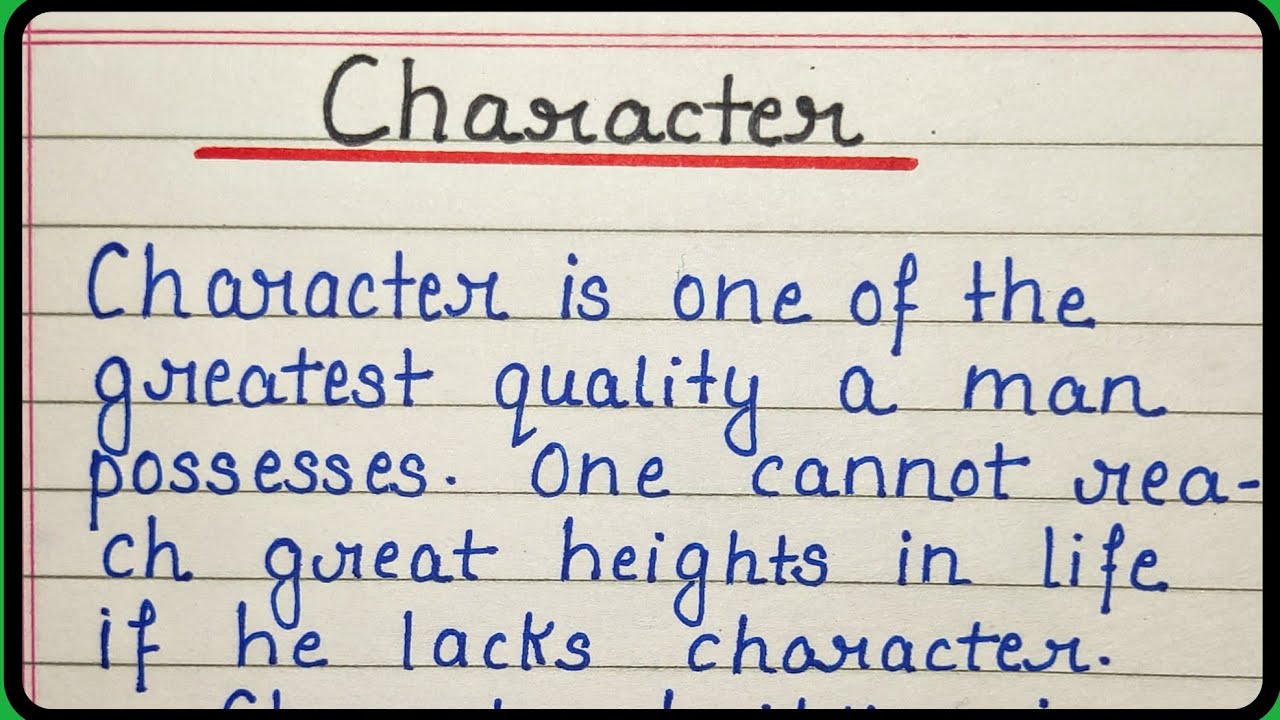 Character
Character is one of the
greatest quality a man
possesses. One cannot rea-
ch great heights in life
if he lacks character.